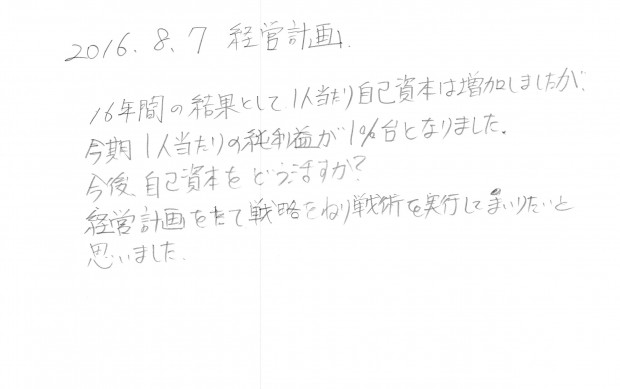 2016.8.7 経営計画.
16年間の結果として1人当たり自己資本は増加しましたが、
今期1人当たりの純利益が1%台となりました。
今後、自己資本をどうますか?
経営計画をたて戦略をねり戦術を実行してまいりたいと
思いました.